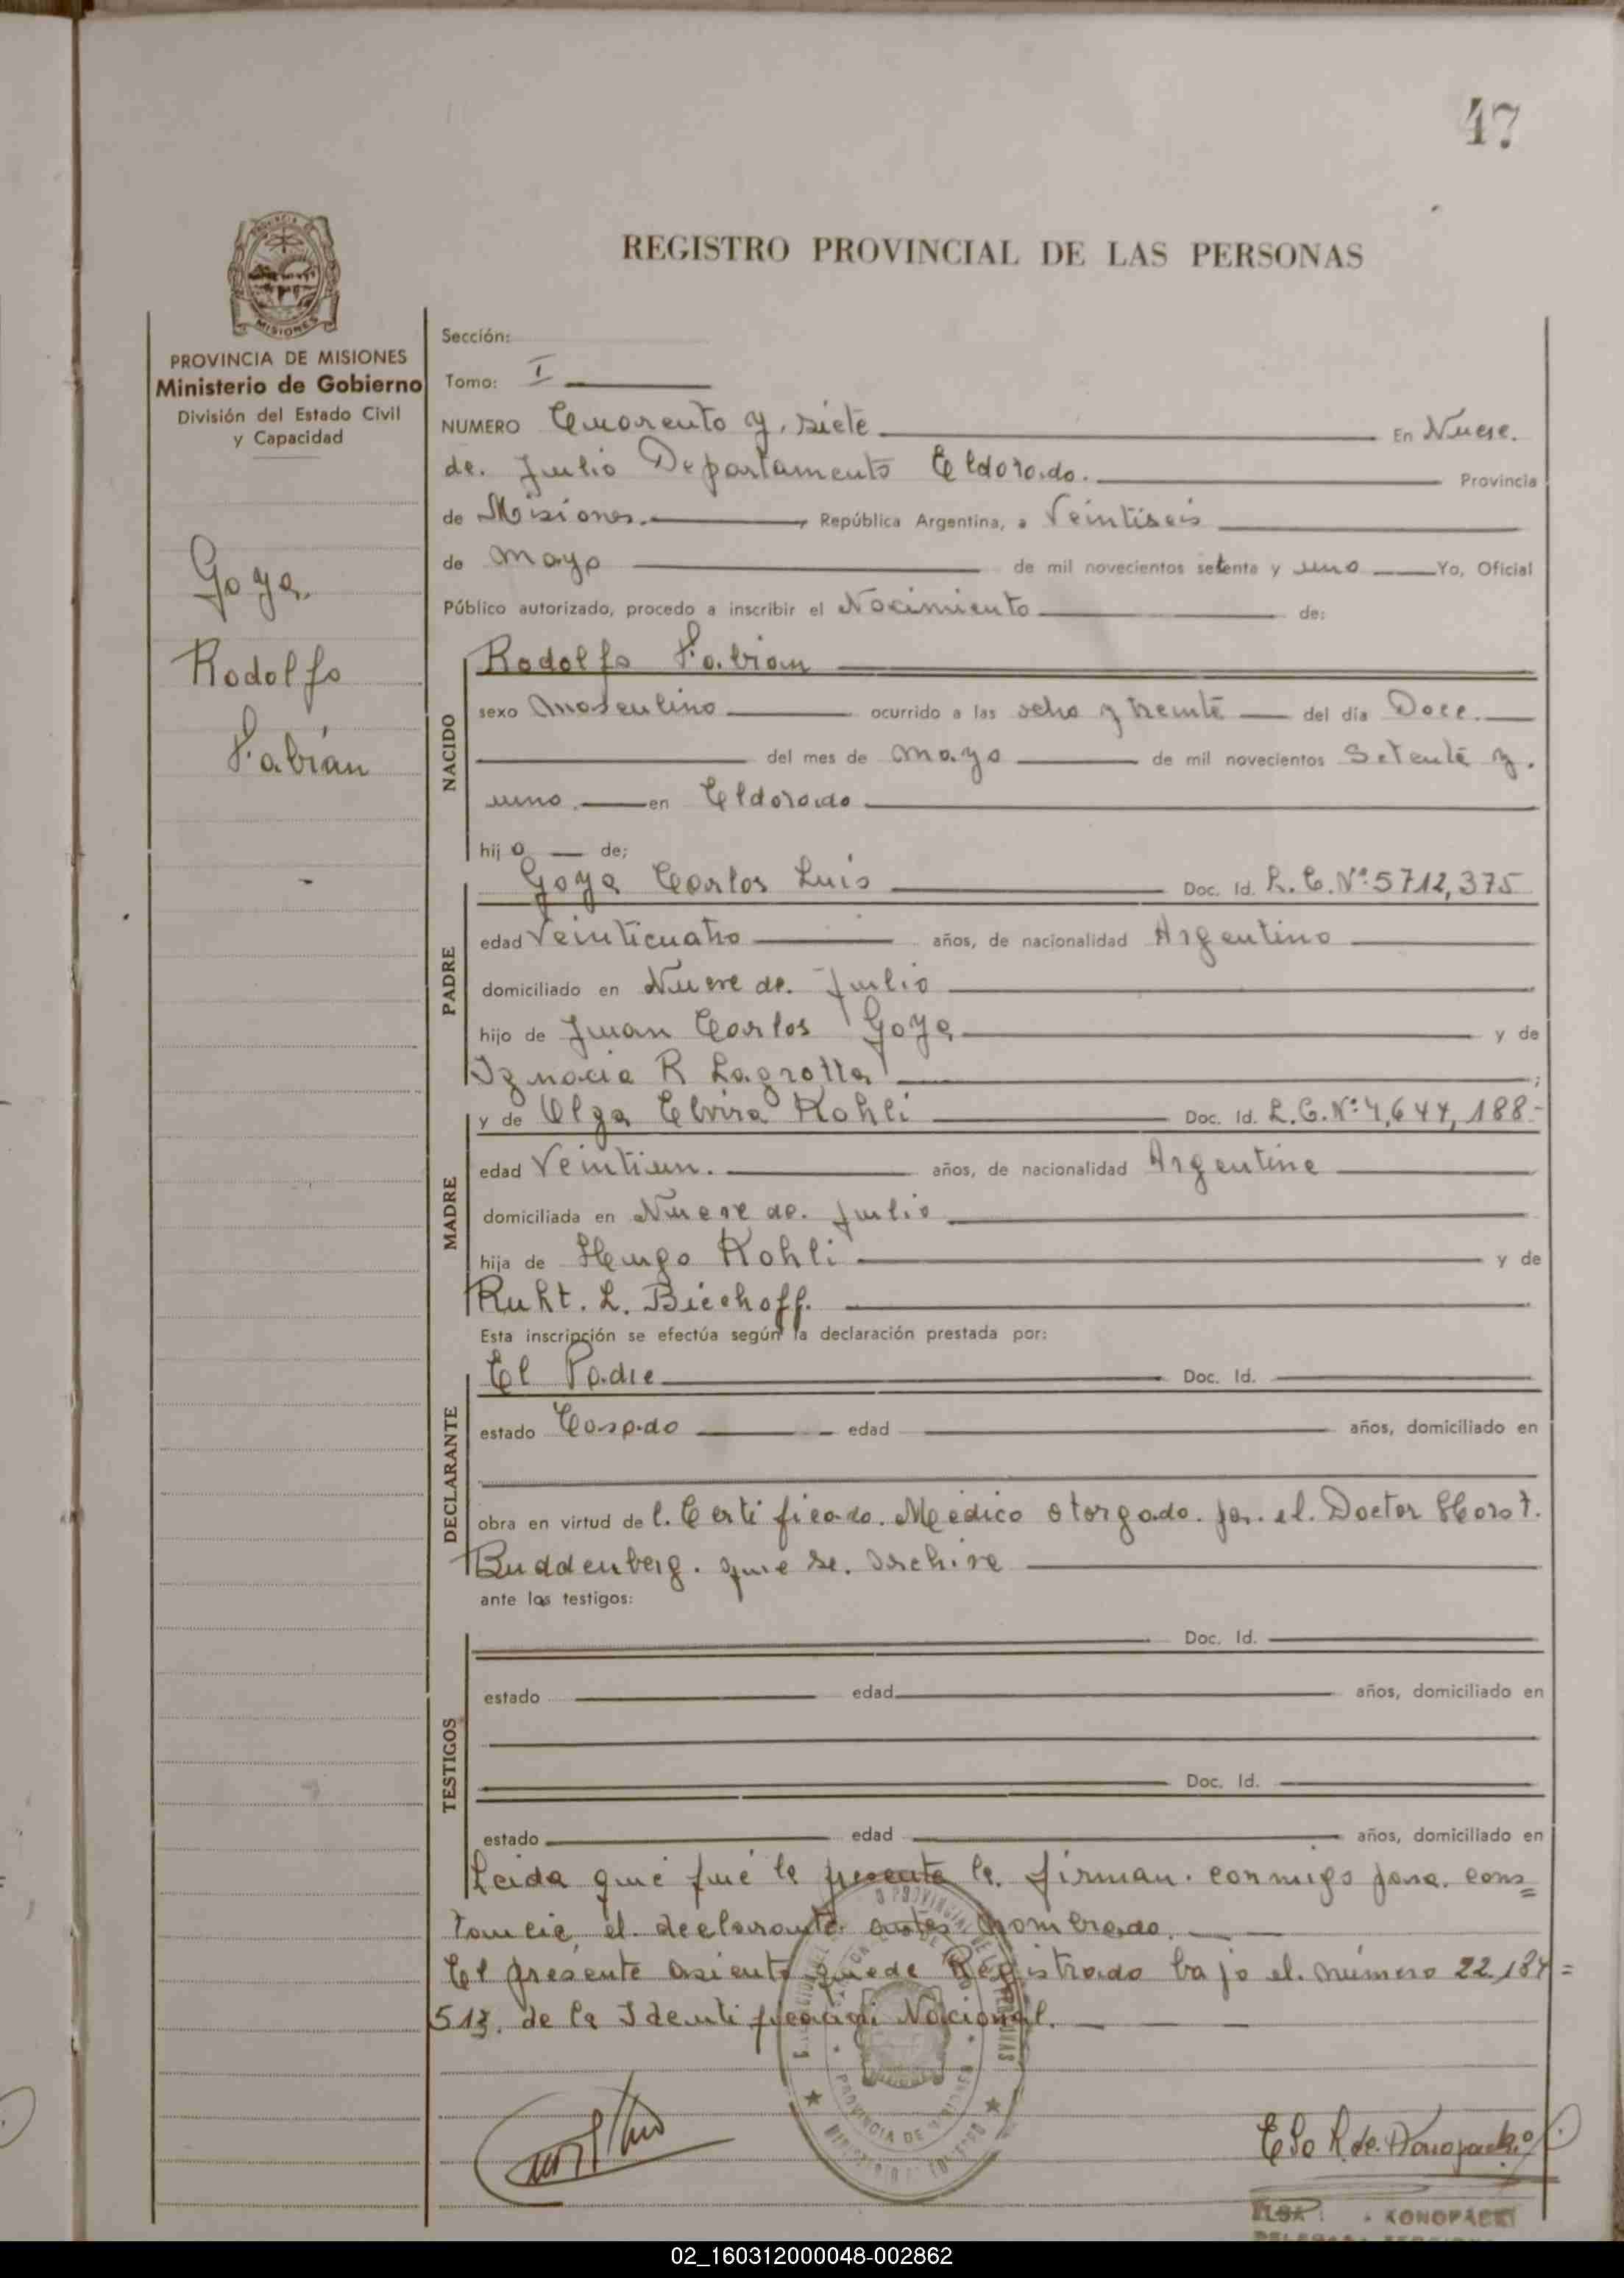 47
REGISTRO PROVINCIAL DE LAS PERSONAS
PROVINCIA DE MISIONES
Ministerio de Gobierno
División del Estado Civil
y Capacidad
Goya
Rodolfo
Fabián
Sección:
Tomo: I
NUMERO Cuarenta y siete En Nueve
de Julio Departamento Eldorado. Provincia
de Misiones. República Argentina, a Veintiseis
de mayo de mil novecientos setenta y uno Yo, Oficial
Público autorizado, procedo a inscribir el Nacimiento de:
NACIDO
Rodolfo Fabian
sexo masculino ocurrido a las ocho y treinta del día Doce.
del mes de mayo de mil novecientos Setenta y
uno. en Eldorado
hijo de;
PADRE
Goya Carlos Luis Doc. Id. L. E. Nº 5712,375
edad Veinticuatro años, de nacionalidad Argentino
domiciliado en Nueve de Julio
hijo de Juan Carlos Goya y de
Ignacia R Lagrotta ;
MADRE
y de Olga Elvira Kohli Doc. Id. L.C. Nº
edad Veintiun. años, de nacionalidad Argentina
domiciliada en Nueve de Julio
hija de Hugo Kohli y de
Ruht. L. Bischoff.
Esta inscripción se efectúa según la declaración prestada por:
DECLARANTE
El Padre Doc. Id.
estado Casado edad años, domiciliado en
obra en virtud del. Certificado. Médico otorgado. por el. Doctor Horst.
Buddenberg. que se. archiva
ante los testigos:
TESTIGOS
Doc. Id.
estado edad años, domiciliado en
Doc. Id.
estado edad años, domiciliado en
Leida que fué la presente la firman. conmigo para. cons=
tancia, el declarante antes nombrado.
El presente asiento queda Registrado bajo el. número 22.187=
513. de la Identificación Nacional.
PROVINCIA DE MISIONES
KONOPACKI
02_160312000048-002862